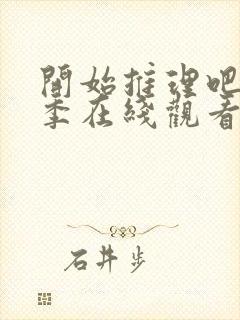 開始推理吧
季在綫觀看
石井步